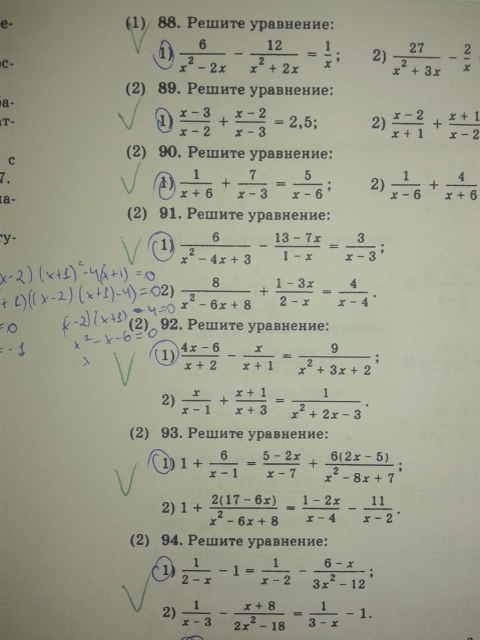 (1) 88. Решите уравнение:
1) 6/(x² − 2x) − 12/(x² + 2x) = 1/x; 2) 27/(x² + 3x) − 2/x
(2) 89. Решите уравнение:
1) (x − 3)/(x − 2) + (x − 2)/(x − 3) = 2,5; 2) (x − 2)/(x + 1) + (x + 1)/(x − 2)
(2) 90. Решите уравнение:
1) 1/(x + 6) + 7/(x − 3) = 5/(x − 6); 2) 1/(x − 6) + 4/(x + 6)
(2) 91. Решите уравнение:
1) 6/(x² − 4x + 3) − (13 − 7x)/(1 − x) = 3/(x − 3);
2) 8/(x² − 6x + 8) + (1 − 3x)/(2 − x) = 4/(x − 4).
(2) 92. Решите уравнение:
1) (4x − 6)/(x + 2) − x/(x + 1) = 9/(x² + 3x + 2);
2) x/(x − 1) + (x + 1)/(x + 3) = 1/(x² + 2x − 3).
(2) 93. Решите уравнение:
1) 1 + 6/(x − 1) = (5 − 2x)/(x − 7) + 6(2x − 5)/(x² − 8x + 7);
2) 1 + 2(17 − 6x)/(x² − 6x + 8) = (1 − 2x)/(x − 4) − 11/(x − 2).
(2) 94. Решите уравнение:
1) 1/(2 − x) − 1 = 1/(x − 2) − (6 − x)/(3x² − 12);
2) 1/(x − 3) − (x + 8)/(2x² − 18) = 1/(3 − x) − 1.
x-2)(x+1)²-4(x+1)=0
+1)((x-2)(x+1)-4)=0
=0 (x-2)(x+1)-4=0
=-1 x²-x-6=0